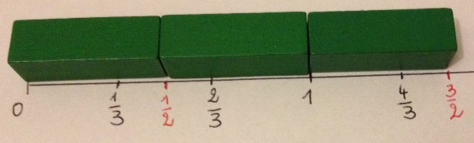 0 1/3 1/2 2/3 1 4/3 3/2